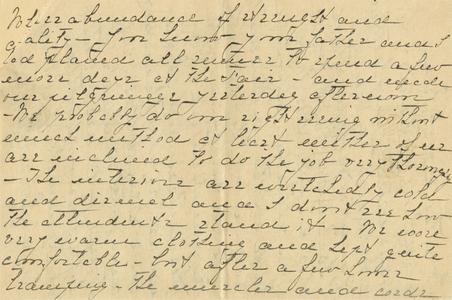 abundance of strength and
gality - You know - your father and I
had planned all winter to spend a few
more days at the Fair - and made
our pilgrimage yesterday afternoon
- We probably do our sight seeing without
much method at least neither of us
are inclined to do the job very thoroughly
- The interiors are wretchedly cold
and dismal and I don't see how
the attendants stand it - We wore
very warm clothing and kept quite
comfortable - but after a few hours
tramping - the muscles and cords